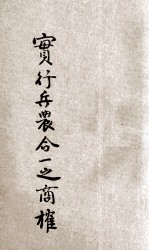 實行兵農合一之商榷